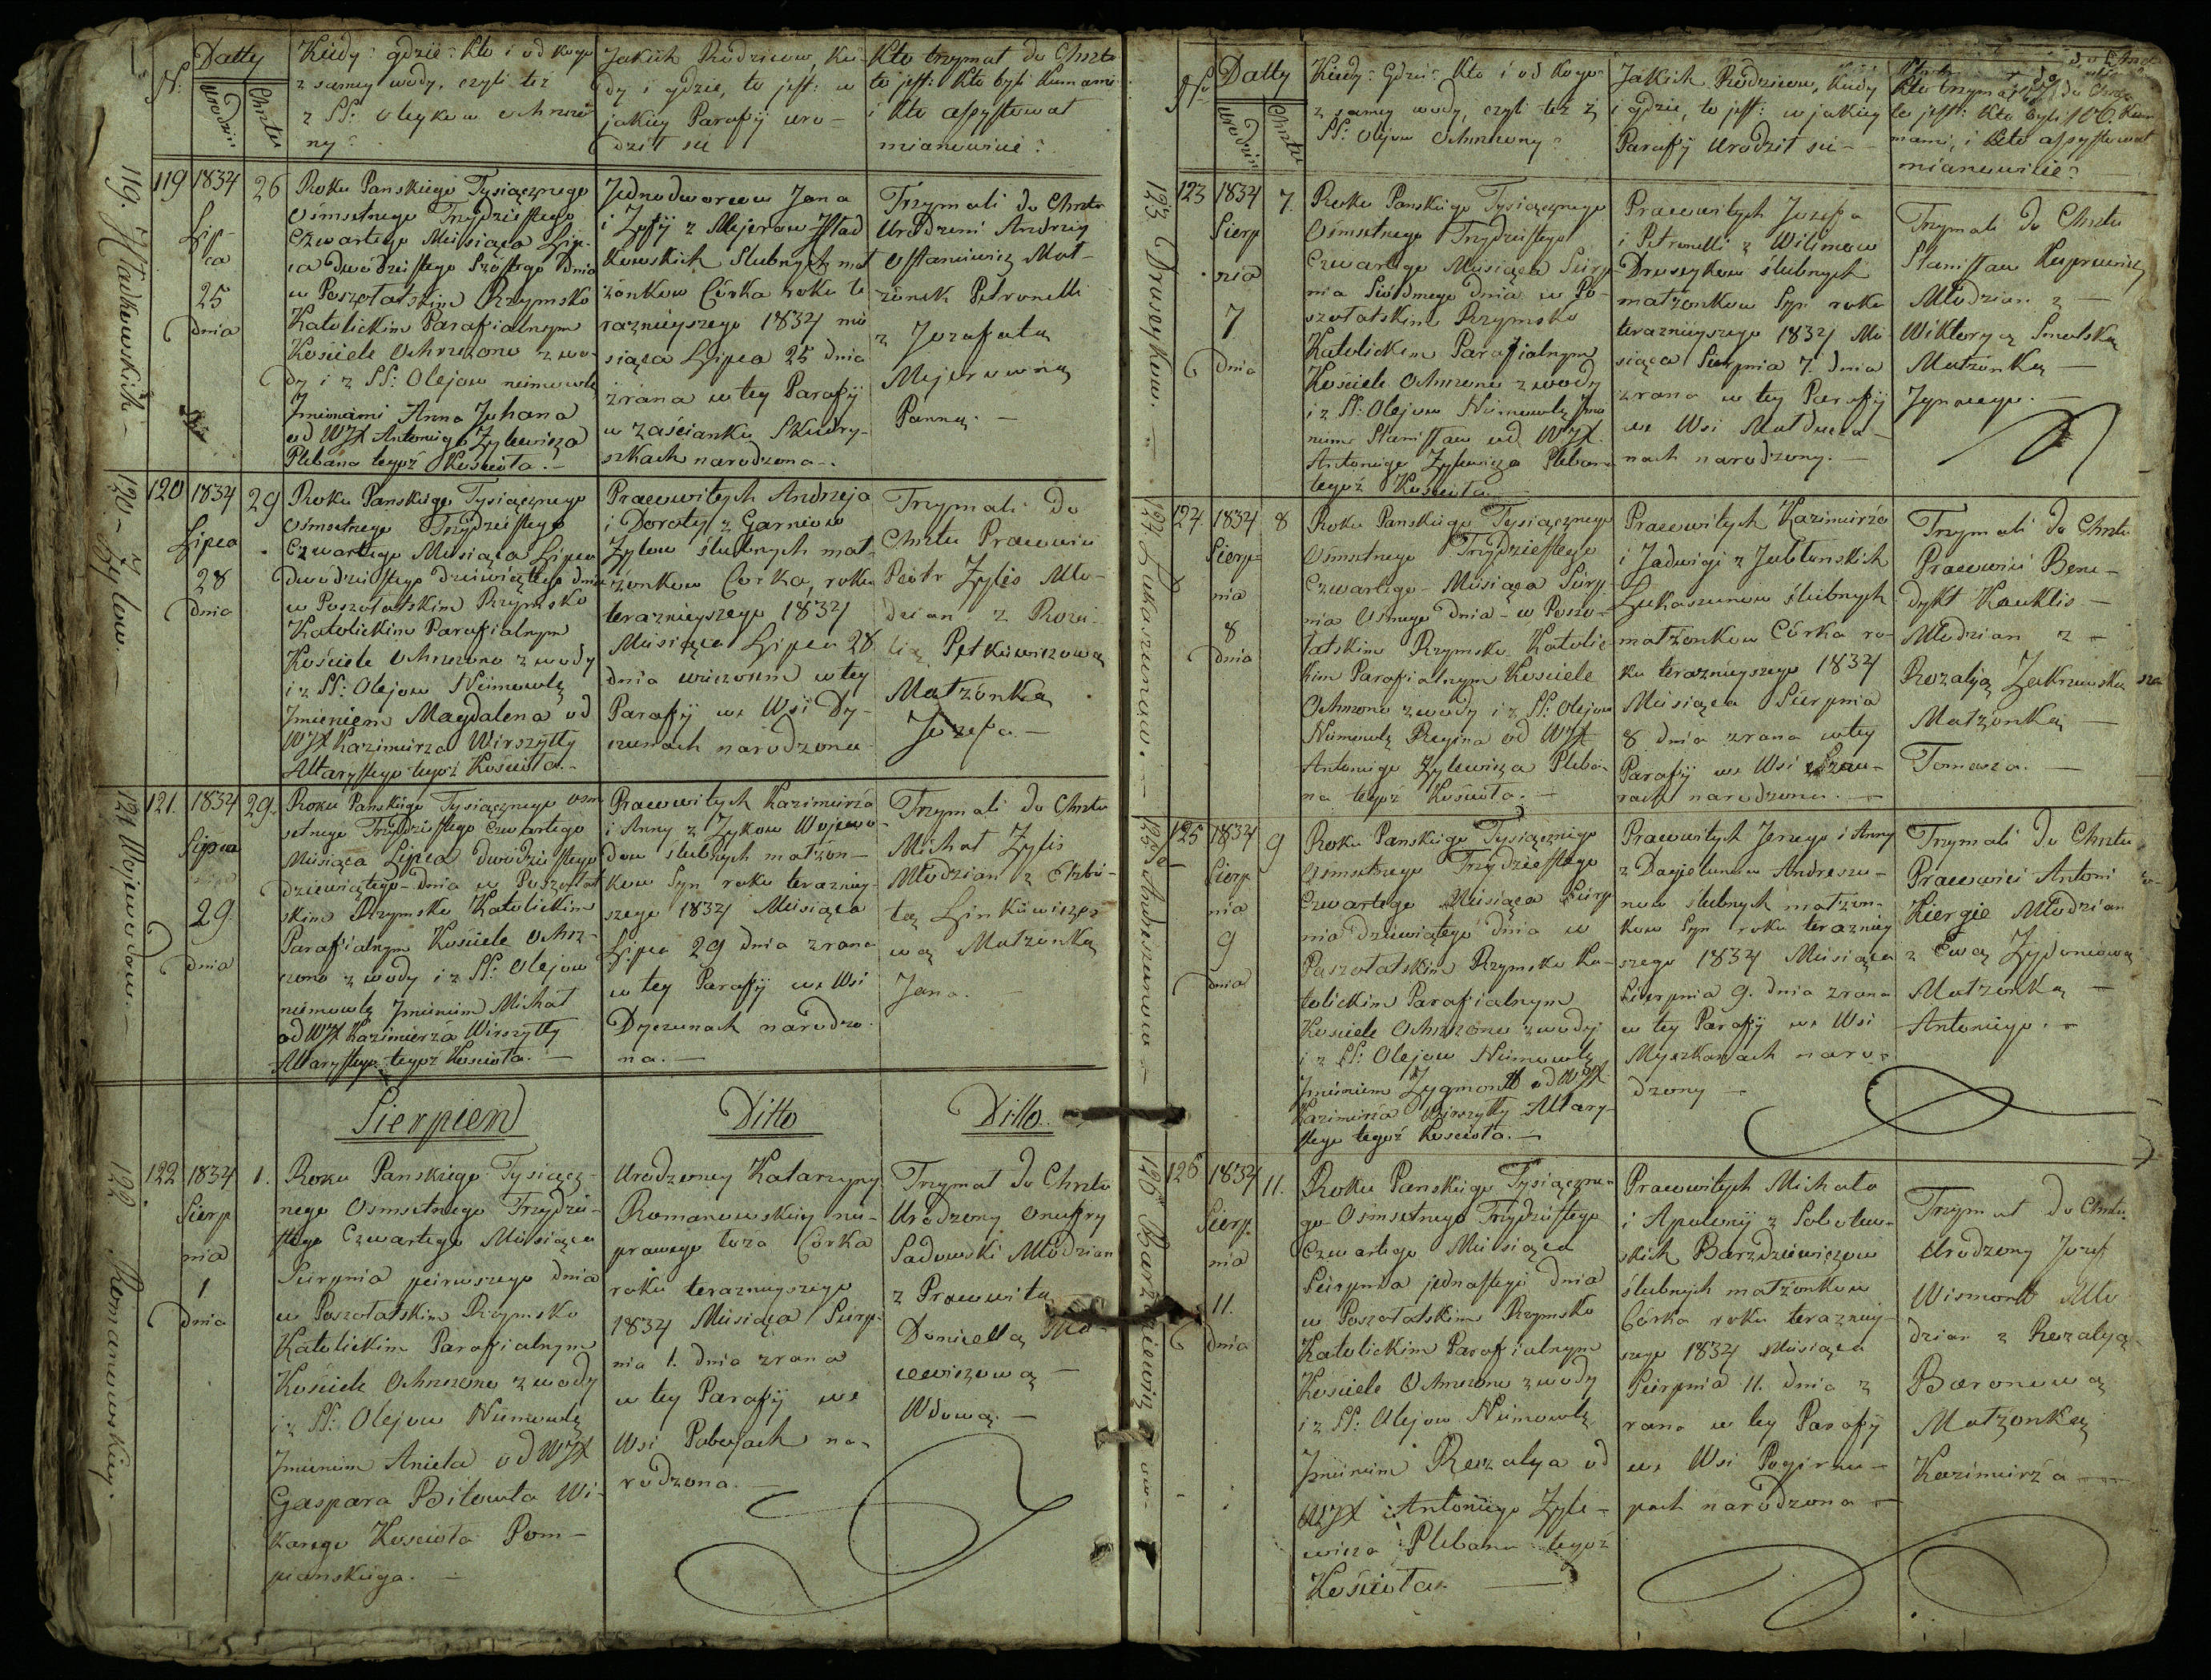 N:
Datty
urodzin
Chrztu
Kiedy: gdzie: Kto i od kogo
z samey wody, czyli też
z SS: Oleykow ochrzczo
ny?
Jakich Rodzicow, kie-
dy i gdzie, to jest: w
jakiey Parafij uro-
dził się
Kto trzymał do Chrztu
to jest: Kto byli Kumami
i kto assystował
mianowicie?
119.
119
1834
Lip-
ca
25
dnia
26
Roku Panskiego Tysiącznego
Ośmsetnego Trzydziestego
Czwartego Miesiąca Lip-
ca dwódziestego Szóstego dnia
w Poszołatskim Rzymsko
Katolickim Parafialnym
Kościele Ochrzczono z wo-
dy i z SS: Olejow niemowlę
Jmionami Anna Johana
od WJX Antoniego Zylewicza
Plebana tegoż Kościoła. –
Jednodworcow Jana
i Zofij z Mejerow
Slubnych mał
żonkow Córka roku te
raznieyszego 1834 mie
siąca Lipca 25 dnia
zrana w tey Parafij
w zaścianku Skudry-
szkach narodzona –
Trzymali do Chrztu
Urodzeni Andrzey
Ostaniewicz Mał-
żonek Petronelli
z Jozafatą
Mejerowną
Panną. –
120 – Zylow. –
120
1834
Lipca
28
dnia
29
Roku Panskiego Tysiącznego
Ośmsetnego Trzydziestego
Czwartego Miesiąca Lipca
dwódziestego dziewiątego dnia
w Poszołatskim Rzymsko
Katolickim Parafialnym
Kościele Ochrzczono z wody
i z SS: Olejow Niemowlę
Jmieniem Magdalena od
WJX Kazimierza Wirszyłły
Altarystego tegoż Kościoła. –
Pracowitych Andrzeja
i Doroty z Garniow
Zylow ślubnych mał-
żonkow Corka, roku
teraznieyszego 1834
Miesiąca Lipca 28
dnia wieczorem w tey
Parafij we Wsi Dy-
czunach narodzona
Trzymali do
Chrztu Pracowici
Piotr Zylis Mło-
dzian z Roza-
lią Petkiewiczową
Małżonką
Jozefa –
121 Wojewodow. –
121.
1834
Lipca
29
dnia
29.
Roku Panskiego Tysiącznego osm
setnego Trzydziestego Czwartego
Miesiąca Lipca dwódziestego
dziewiątego dnia w Poszołat
skim Rzymsko Katolickim
Parafialnym Kościele Ochrz-
czono z wody i z SS: Olejow
niemowlę Jmieniem Michał
od WJX Kazimierza Wirszyłły
Altarystego tegoż Kościoła. –
Pracowitych Kazimierza
i Anny z Zykow Wojewo
dow ślubnych małżon-
kow Syn roku terazniey-
szego 1834 Miesiąca
Lipca 29 dnia zrana
w tey Parafij we Wsi
Dyczunach narodzo-
na. –
Trzymali do Chrztu
Michał Zylis
Młodzian z Elżbie-
tą Linkiewiczo
wą Małżonką
Jana. –
Sierpień
Ditto
Ditto.
122 Romanowskiey. –
122
1834
Sierp
nia
1
dnia
1.
Roku Panskiego Tysiącz-
nego Ośmsetnego Trzydzie-
stego Czwartego Miesiąca
Sierpnia pierwszego dnia
w Poszołatskim Rzymsko
Katolickim Parafialnym
Kościele Ochrzczono z wody
i z SS: Olejow Niemowlę
Jmieniem Aniela od WJX
Gaspara Bitowta Wi-
karego Kościoła Pom-
pianskiego. –
Urodzoney Katarzyny
Romanowskiey nie-
prawego łoża Córka
roku teraznieyszego
1834 Miesiąca Sierp-
nia 1. dnia zrana
w tey Parafij we
Wsi na-
rodzona. –
Trzymał do Chrztu
Urodzony Onufry
Sadowski Młodzian
z Pracowitą
Daniellą
cewiczową –
Wdową. –
N:
Datty
urodzin
Chrztu
Kiedy: Gdzie: Kto i od kogo
z samey wody, czyli też z
SS: Olejow Ochrzczony?
Jakich Rodzicow, kiedy
i gdzie, to jest: w jakiey
Parafij Urodził się –
Kto trzymał do Chrztu
to jest: Kto byli Kum
mami, i Kto assystował
mianowicie?
106.
123 Druseykow. –
123
1834
Sierp
nia
7
dnia
7.
Roku Panskiego Tysiącznego
Ośmsetnego Trzydziestego
Czwartego Miesiąca Sierp
nia Siódmego dnia w Po-
szołatskim Rzymsko
Katolickim Parafialnym
Kościele Ochrzczono z wody
i z SS: Olejow Niemowlę Jmie
niem Stanisław od WJX.
Antoniego Zylewicza Plebana
tegoż Kościoła
Pracowitych Jozefa
i Petronelli z Wilimow
Druseykow ślubnych
małżonkow Syn roku
teraznieyszego 1834 Mie
siąca Sierpnia 7. dnia
zrana w tey Parafij
we Wsi
nach narodzony. –
Trzymali do Chrztu
Stanisław Kuprewicz
Młodzian z –
Wiktoryą Smolską
Małżonką –
Jgnacego. –
124 Łukaszunow. –
124
1834
Sierp-
nia
8
dnia
8
Roku Panskiego Tysiącznego
Ośmsetnego Trzydziestego
Czwartego Miesiąca Sierp-
nia Osmego dnia w Poszo-
łatskim Rzymsko Katolic-
kim Parafialnym Kościele
Ochrzczono z wody i z SS: Olejow
Niemowlę Regina od WJX
Antoniego Zylewicza Pleba-
na tegoż Kościoła. –
Pracowitych Kazimierza
i Jadwigi z Jabłonskich
Łukaszunow ślubnych
małżonkow Córka ro-
ku teraznieyszego 1834
Miesiąca Sierpnia
8 dnia zrana w tey
Parafij we Wsi
rach narodzona. –
Trzymali do Chrztu
Pracowici Bene-
dykt Kauklis –
Młodzian z –
Rozalją Zakrzewską
Małżonką –
Tomasza. –
125 Andreszunow –
125
1834
Sierp
nia
9
dnia
9
Roku Panskiego Tysiącznego
Ośmsetnego Trzydziestego
Czwartego Miesiąca Sierp
nia dziewiątego dnia w
Poszołatskim Rzymsko Ka-
tolickim Parafialnym
Kościele Ochrzczono z wody
i z SS: Olejow Niemowlę
Jmieniem Zygmontt od WJX
Kazimierza Wirszyłły Altary-
stego tegoż Kościoła. –
Pracowitych Jerzego i Anny
z Dagielunow Andreszu-
now ślubnych małżon-
kow Syn roku terazniey
szego 1834 Miesiąca
Sierpnia 9. dnia zrana
w tey Parafij we Wsi
Myszkanach naro-
dzony –
Trzymali do Chrztu
Pracowici Antoni
Kiergie Młodzian
z Ewą Zydoniową
Małżonką –
Antoniego. –
126 Barzdziewiczow. –
126
1834
Sierp-
nia
11.
dnia
11.
Roku Panskiego Tysiączne-
go Ośmsetnego Trzydziestego
Czwartego Miesiąca
Sierpnia jednastego dnia
w Poszołatskim Rzymsko
Katolickim Parafialnym
Kościele Ochrzczono z wody
i z SS: Olejow Niemowlę
Jmieniem Rozalya od
WJX Antoniego Zyle-
wicza Plebana tegoż
Kościoła. –
Pracowitych Michała
i Apolonij z Sobolew-
skich Barzdziewiczow
ślubnych małżonkow
Córka roku terazniey-
szego 1834 Miesiąca
Sierpnia 11. dnia z
rana w tey Parafij
we Wsi Pogirnu-
pach narodzona –
Trzymał do Chrztu
Urodzony Jozef
Wismontt Mło
dzian z Rozalyą
Baronową
Małżonką
Kazimierza –